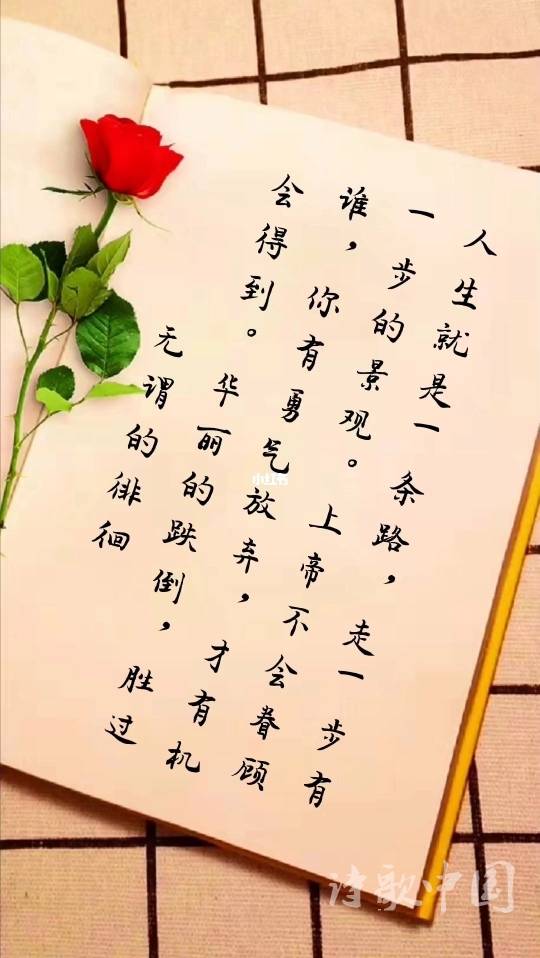 人生就是一条路，走一步有
一步的景观。上帝不会眷顾
谁，你有勇气放弃，才有机
会得到。华丽的跌倒，胜过
无谓的徘徊
小红书
诗歌中国